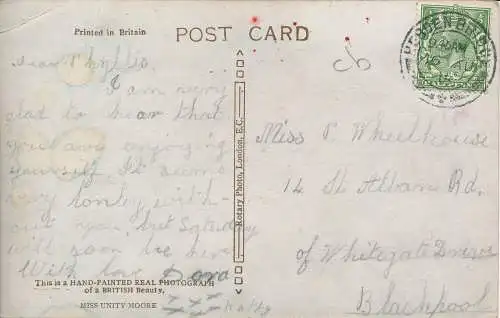 Printed in Britain
POST CARD
Dear Phyllis
I am very
glad to hear that
you are enjoying
yourself. It seems
very lonely with-
out you, but Saturday
will soon be here
With love Dora
This is a HAND-PAINTED REAL PHOTOGRAPH
of a BRITISH Beauty,
MISS UNITY MOORE
Rotary Photo, London, E.C.
HEBDEN BRIDGE
Miss P. Wheelhouse
14 St Albans Rd.
of Whitegate Drive
Blackpool